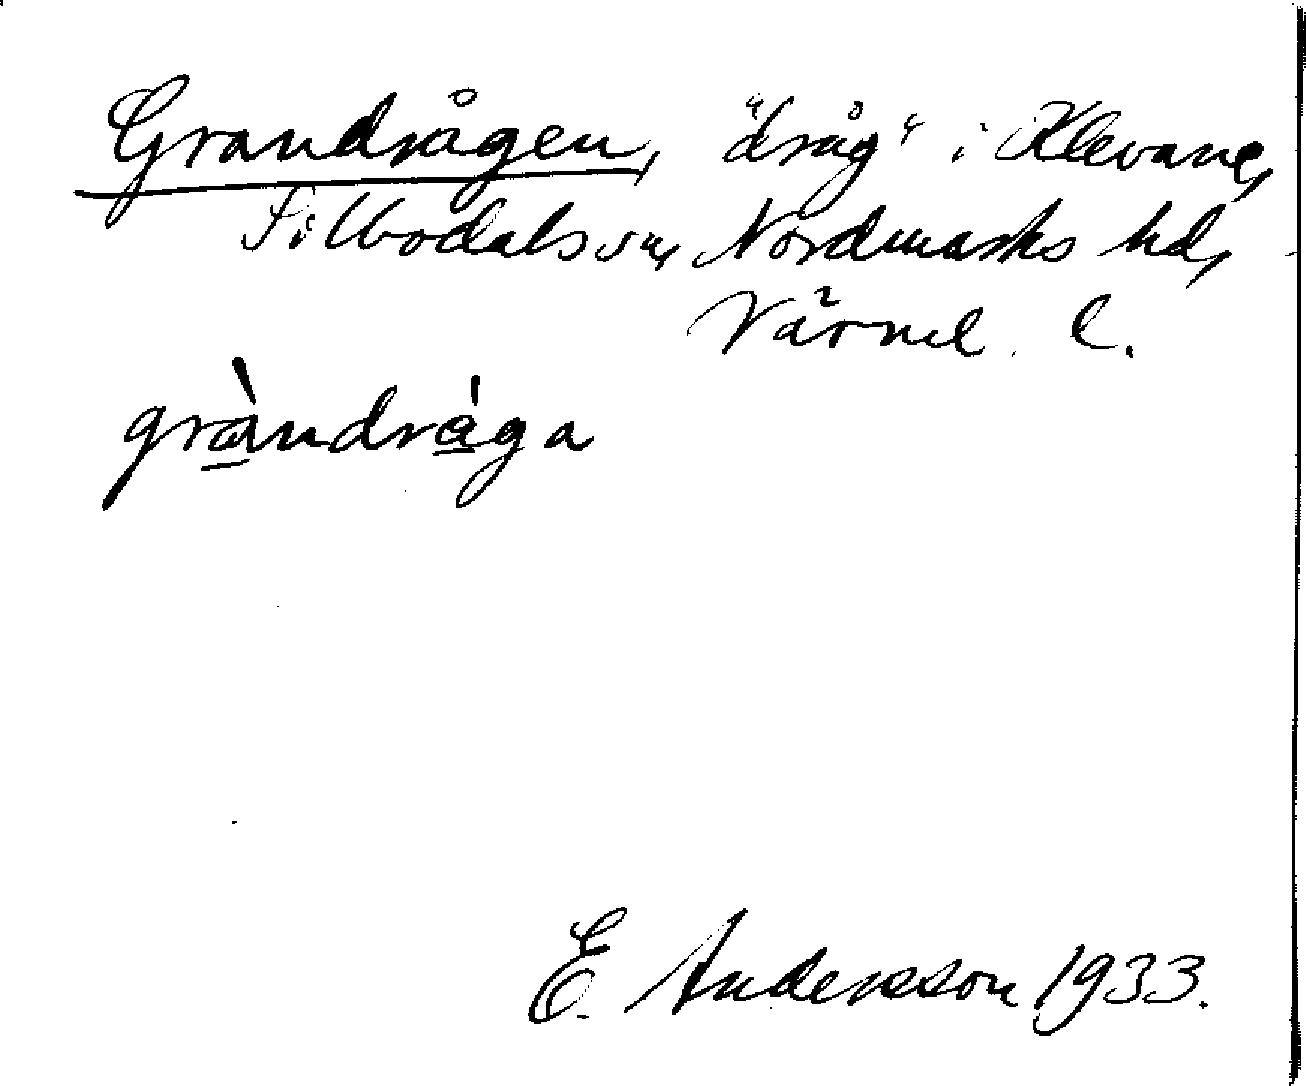 Grandrågen, "dråg" i Klevane,
Silbodals sn, Nordmarks hd,
Värml. l.
gràndråga
E. Andersson 1933.